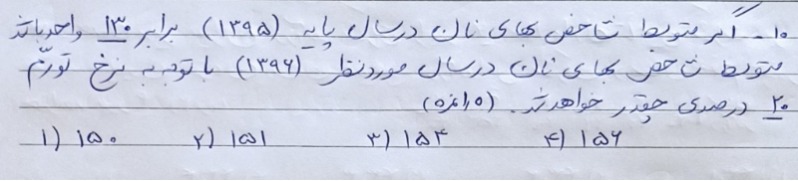 ۱۰- اگر متوسط شاخص بهای نان درسال پایه (۱۳۹۵) برابر ۱۳۰ واحد باشد
متوسط شاخص بهای نان درسال موردنظر (۱۳۹۶) با توجه به نرخ تورّم
۲۰ درصدی چقدر خواهد شد. (۱٫۵نمره)
۱) ۱۵۰ ۲) ۱۵۱ ۳) ۱۵۴ ۴) ۱۵۶